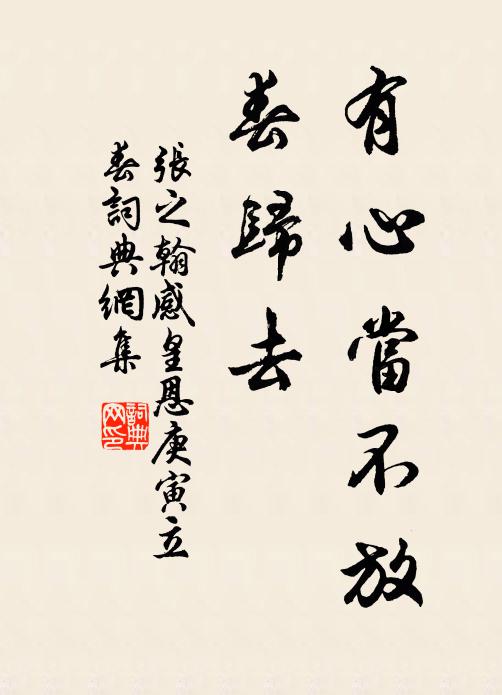 有心當不放
春歸去
張之翰感皇恩庚寅立
春詞典網集
詞典
网印